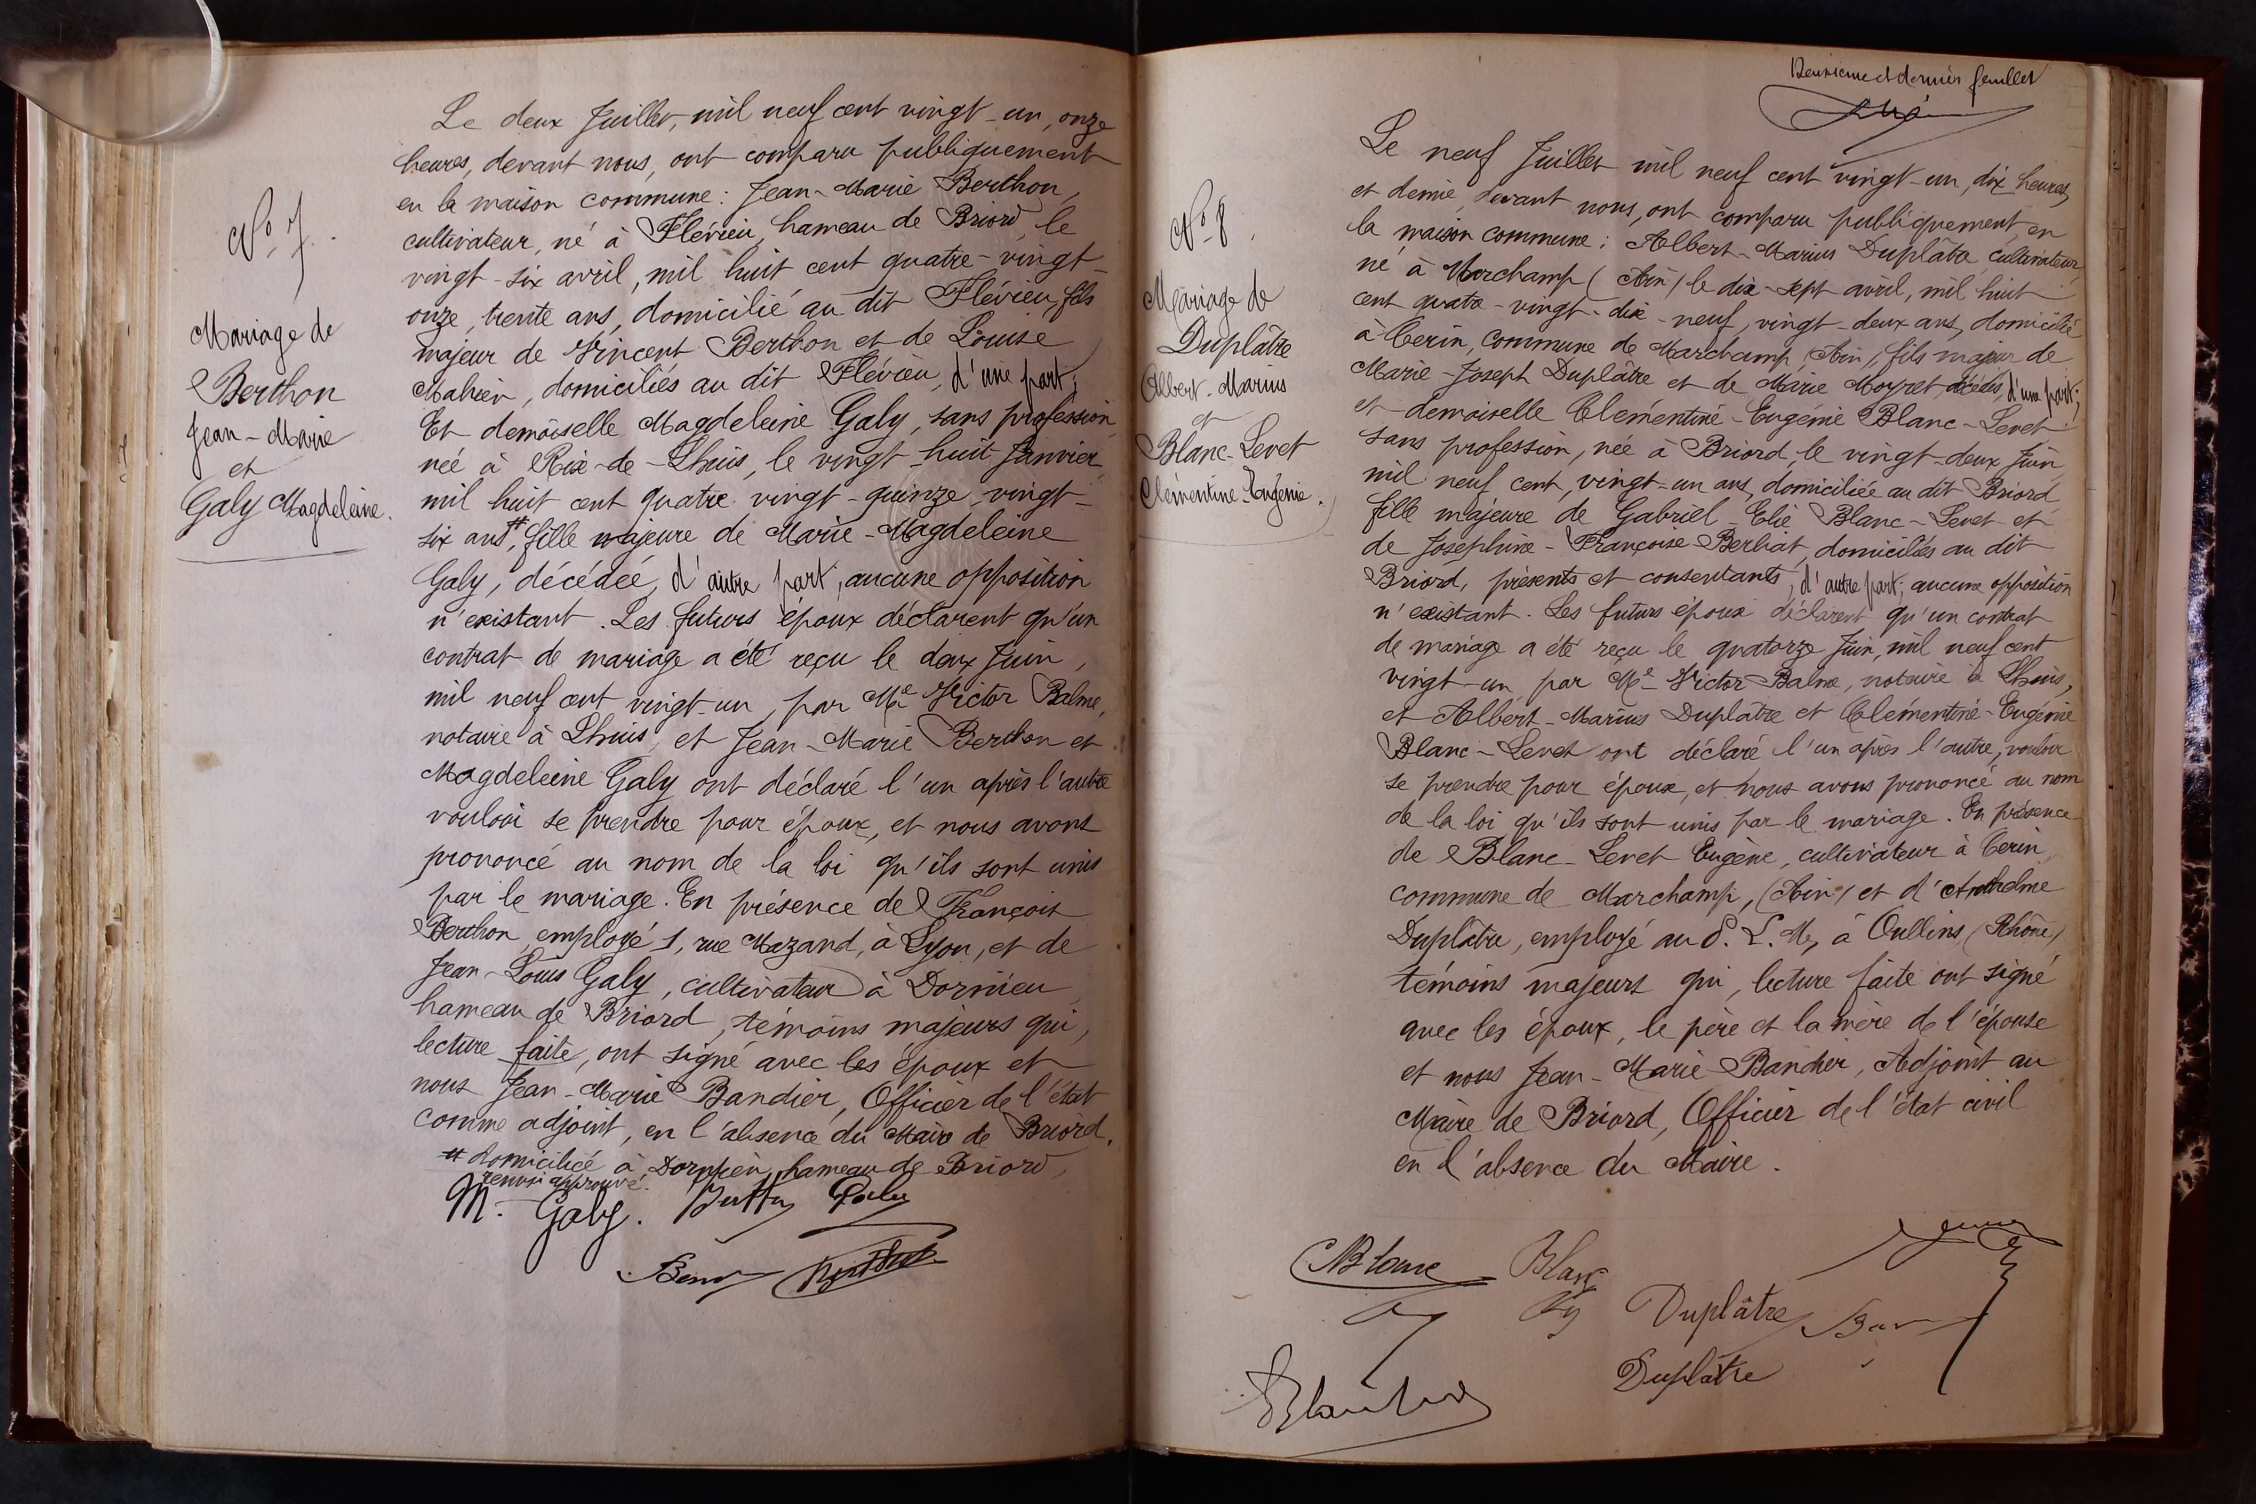 N° 7.
Mariage de
Berthon
Jean-Marie
et
Galy Magdeleine.
Le deux Juillet, mil neuf cent vingt-un, onze
heures, devant nous, ont comparu publiquement
en la maison commune : Jean-Marie Berthon,
cultivateur, né à Flévieu, hameau de Briord, le
vingt-six avril, mil huit cent quatre-vingt-
onze, trente ans, domicilié au dit Flévieu, fils
majeur de Vincent Berthon et de Louise
domiciliés au dit Flévieu, d'une part ;
Et demoiselle Magdeleine Galy, sans profession,
née à Rix-de-Lhuis, le vingt-huit Janvier
mil huit cent quatre vingt-quinze, vingt-
six ans #, fille majeure de Marie-Magdeleine
Galy, décédée, d'autre part, aucune opposition
n'existant. Les futurs époux déclarent qu'un
contrat de mariage a été reçu le deux Juin,
mil neuf cent vingt-un, par Me Victor Balme,
notaire à Lhuis, et Jean-Marie Berthon et
Magdeleine Galy ont déclaré l'un après l'autre
vouloir se prendre pour époux, et nous avons
prononcé au nom de la loi qu'ils sont unis
par le mariage. En présence de François
Berthon, employé 1, rue Mazand, à Lyon, et de
Jean-Louis Galy, cultivateur à Dornieu
hameau de Briord, témoins majeurs qui,
lecture faite, ont signé avec les époux et
nous Jean-Marie Bandier, Officier de l'état
comme adjoint, en l'absence du Maire de Briord.
# domiciliée à hameau de Briord,
renvoi approuvé.
M. Galy. Galy
Deuxième et dernier feuillet
N° 8.
Mariage de
Duplâtre
Albert-Marius
et
Blanc-Levet
Clémentine-Eugénie.
Le neuf Juillet mil neuf cent vingt-un, dix heures
et demie, devant nous, ont comparu publiquement en
la maison commune : Albert-Marius Duplâtre, cultivateur
né à Marchamp (Ain) le dix-sept avril, mil huit
cent quatre-vingt-dix-neuf, vingt-deux ans, domicilié
à Cerin, commune de Marchamp (Ain), fils majeur de
Marie-Joseph Duplâtre et de Marie décédés, d'une part ;
et demoiselle Clémentine-Eugénie Blanc-Levet
sans profession, née à Briord, le vingt-deux Juin
mil neuf cent, vingt-un ans, domiciliée au dit Briord
fille majeure de Gabriel-Elie Blanc-Levet et
de Joséphine-Françoise Berliat, domiciliés au dit
Briord, présents et consentants, d'autre part ; aucune opposition
n'existant. Les futurs époux déclarent qu'un contrat
de mariage a été reçu le quatorze Juin, mil neuf cent
vingt-un, par Me Victor Balme, notaire à Lhuis,
et Albert-Marius Duplâtre et Clémentine-Eugénie
Blanc-Levet ont déclaré l'un après l'autre, vouloir
se prendre pour époux, et nous avons prononcé au nom
de la loi qu'ils sont unis par le mariage. En présence
de Blanc-Levet Eugène, cultivateur à Cerin,
commune de Marchamp, (Ain) et d'Anthelme
Duplâtre, employé au P. L. M, à Oullins (Rhône)
témoins majeurs qui, lecture faite ont signé
avec les époux, le père et la mère de l'épouse
et nous Jean-Marie Bandier, Adjoint au
Maire de Briord, Officier de l'état civil
en l'absence du Maire.
Blanc
Duplâtre
Duplâtre